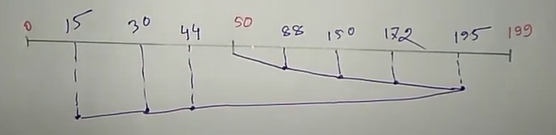 0 15 30 44 50 88 150 172 195 199